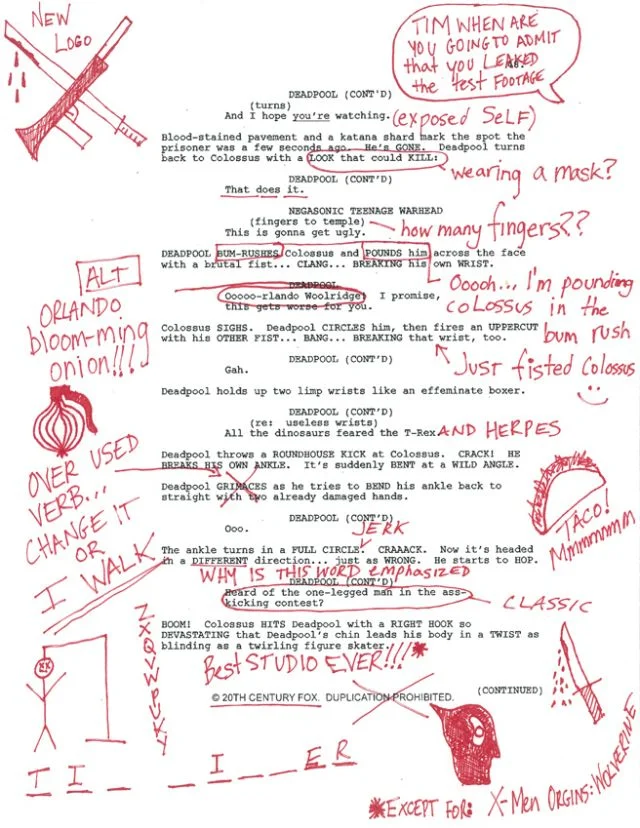 NEW
LOGO
TIM WHEN ARE
YOU GOING TO ADMIT
that you LEAKED
the test FOOTAGE
DEADPOOL (CONT'D)
(turns)
And I hope you're watching. (exposed SELF)
Blood-stained pavement and a katana shard mark the spot the
prisoner was a few seconds ago. He's GONE. Deadpool turns
back to Colossus with a LOOK that could KILL:
wearing a mask?
DEADPOOL (CONT'D)
That does it.
NEGASONIC TEENAGE WARHEAD
(fingers to temple)
how many fingers??
This is gonna get ugly.
DEADPOOL BUM-RUSHES Colossus and POUNDS him across the face
with a brutal fist... CLANG... BREAKING his own WRIST.
ALT
ORLANDO
bloom-ming
onion!!!
DEADPOOL
Ooooo-rlando Woolridge, I promise,
this gets worse for you.
Ooooh... I'm pounding
COLOSSUS in the
bum rush
Colossus SIGHS. Deadpool CIRCLES him, then fires an UPPERCUT
with his OTHER FIST... BANG... BREAKING that wrist, too.
Just fisted Colossus
DEADPOOL (CONT'D)
Gah.
Deadpool holds up two limp wrists like an effeminate boxer.
DEADPOOL (CONT'D)
(re: useless wrists)
All the dinosaurs feared the T-Rex AND HERPES
Deadpool throws a ROUNDHOUSE KICK at Colossus. CRACK! HE
BREAKS HIS OWN ANKLE. It's suddenly BENT at a WILD ANGLE.
OVER USED
VERB...
CHANGE IT
OR
I WALK
Deadpool GRIMACES as he tries to BEND his ankle back to
straight with two already damaged hands.
TACO!
Mmmmmmm
DEADPOOL (CONT'D)
Ooo.
JERK
The ankle turns in a FULL CIRCLE. CRAAACK. Now it's headed
in a DIFFERENT direction... just as WRONG. He starts to HOP.
WHY IS THIS WORD emphasized
DEADPOOL (CONT'D)
Heard of the one-legged man in the ass-
kicking contest?
CLASSIC
BOOM! Colossus HITS Deadpool with a RIGHT HOOK so
DEVASTATING that Deadpool's chin leads his body in a TWIST as
blinding as a twirling figure skater.
Best STUDIO EVER!!!*
© 20TH CENTURY FOX. DUPLICATION PROHIBITED.
(CONTINUED)
Z
X
Q
V
W
P
U
K
Y
T I _ _ I _ _ E R
*EXCEPT FOR: X-Men ORGINS: WOLVERINE